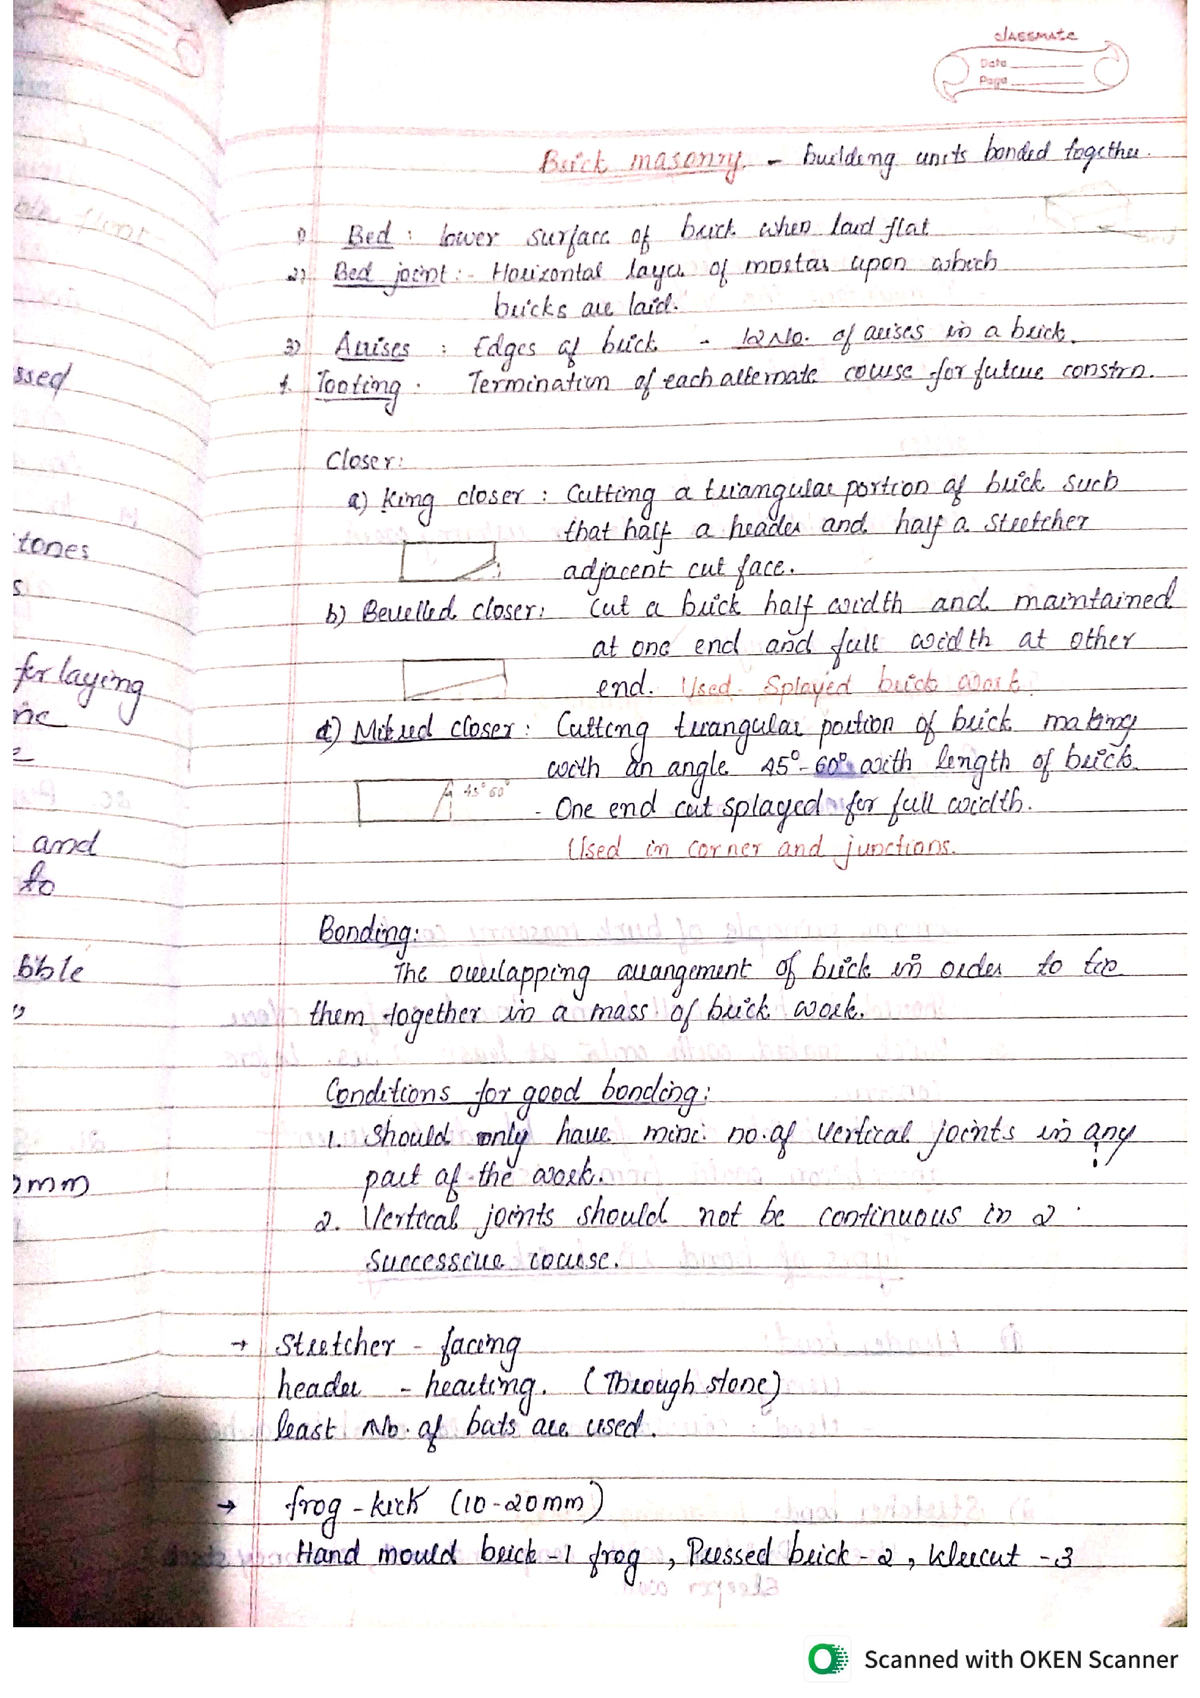 classmate
Date
Page
Brick masonry - building units bonded together.
1) Bed : lower surface of brick when laid flat
2) Bed joint :- Horizontal layer of mortar upon which
bricks are laid.
3) Arrises : Edges of brick - 12 No. of arises in a brick.
4. Tooting : Termination of each alternate course for future constrn.
Closer:
a) King closer : Cutting a triangular portion of brick such
that half a header and half a stretcher
adjacent cut face.
b) Bevelled closer: Cut a brick half width and maintained
at one end and full width at other
end. Used Splayed brick work.
d) Mitred closer : Cutting triangular portion of brick making
with an angle 45°-60° with length of brick.
45° 60°
- One end cut splayed for full width.
Used in corner and junctions.
Bonding:
The overlapping arrangement of brick in order to tie
them together in a mass of brick work.
Conditions for good bonding:
1. Should only have mini. no. of vertical joints in any
part of the work.
2. Vertical joints should not be continuous in 2
successive course.
→ Stretcher - facing
header - hearting. (Through stone)
least No. of bats are used.
→ frog - kick (10-20mm)
Hand mould brick - 1 frog , Pressed brick - 2 , Wirecut - 3
ssed
tones
s
for laying
ne
and
to
bble
mm
Scanned with OKEN Scanner